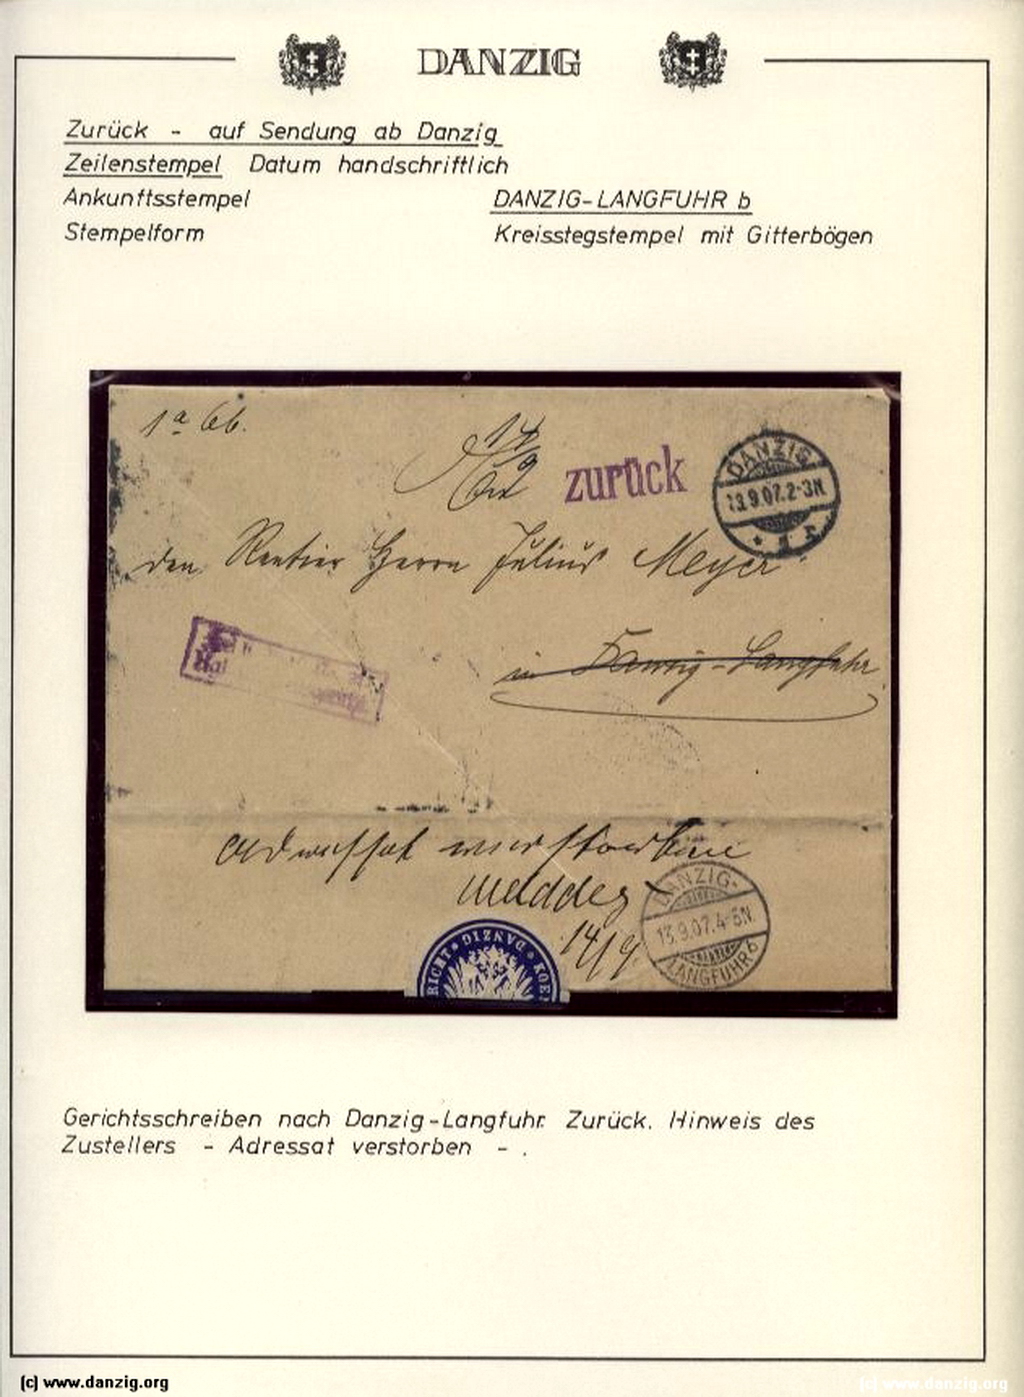 DANZIG
Zurück - auf Sendung ab Danzig
Zeilenstempel Datum handschriftlich
Ankunftsstempel DANZIG-LANGFUHR b
Stempelform Kreisstegstempel mit Gitterbögen
1a Cb.
14/9
zurück
DANZIG
13.9.07.2-3N.
den Rentier Herrn Julius Meyer
in Danzig-Langfuhr
Adressat verstorben
14/9.
DANZIG-
13.9.07.4-5N.
LANGFUHR b
RICHT * DANZIG * KOE
Gerichtsschreiben nach Danzig-Langfuhr. Zurück. Hinweis des
Zustellers - Adressat verstorben - .
(c) www.danzig.org
(c) www.danzig.org